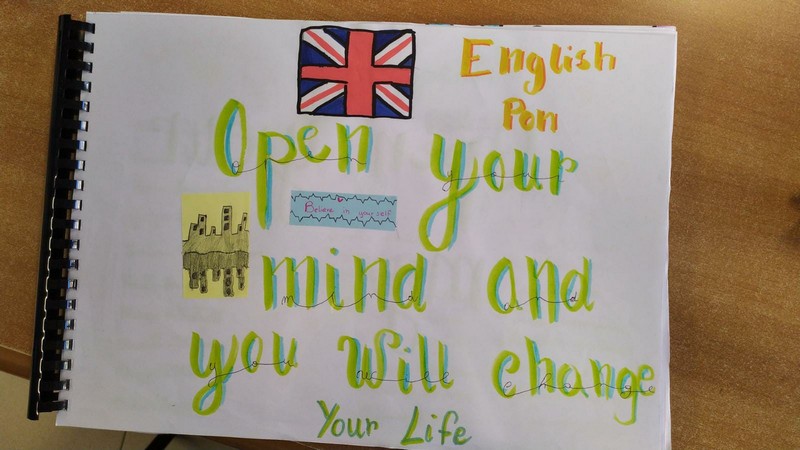 English
Pon
Open your
Believe in your self
mind and
you will change
Your Life